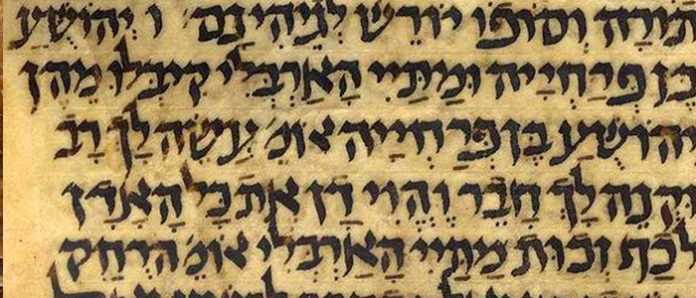 תורה וסופו יורש לגיהינם ו יהושע
בן פרחייה ומתיי הארבילי קיבלו מהן
יהושע בן פרחייה אומ' עשה לך רב
וקנה לך חבר והוי דן את כל האדן
לכף זכות מתיי הארבילי אומ' הרחק